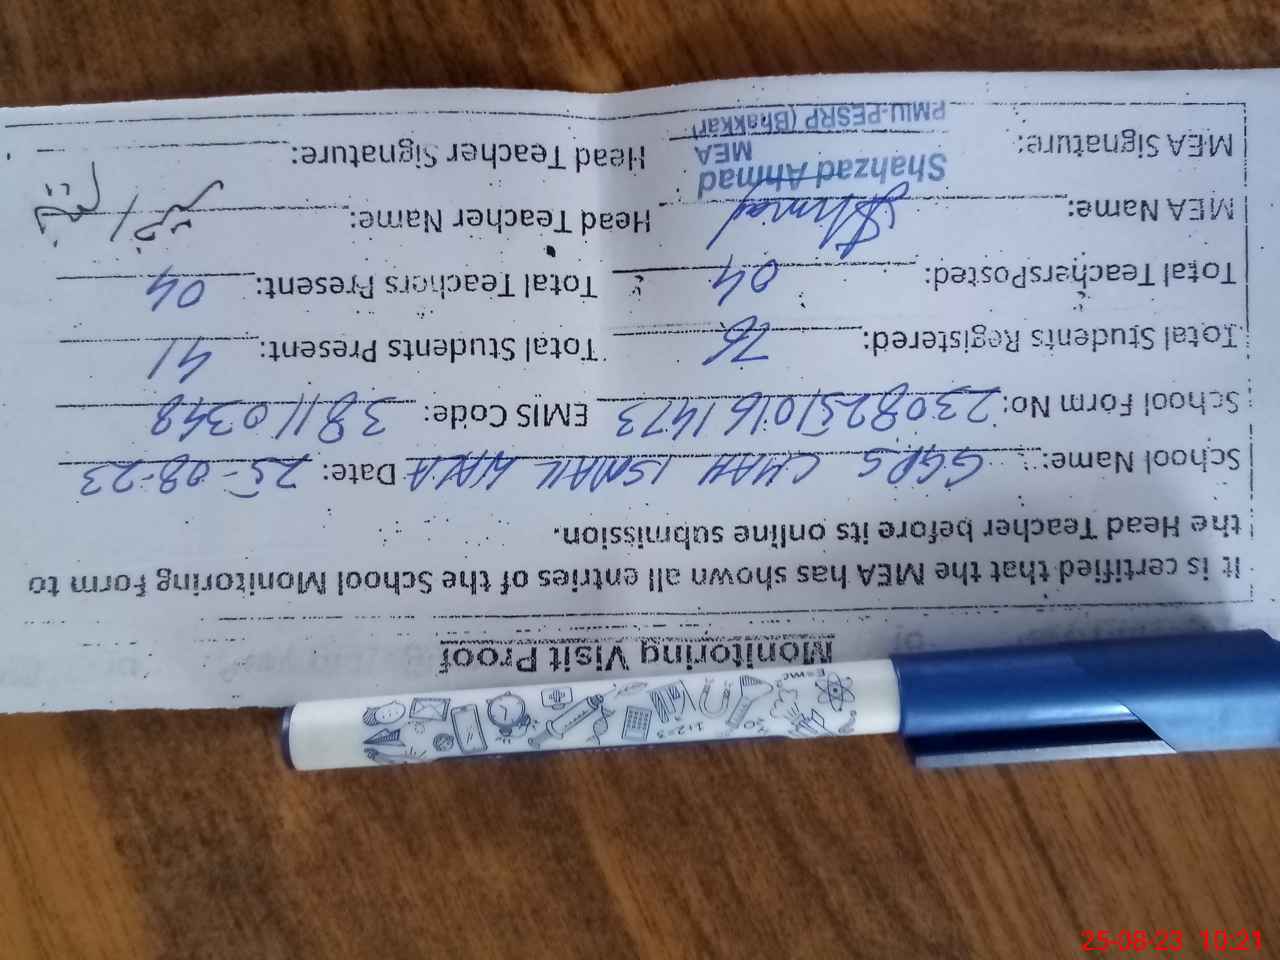 Monitoring Visit Proof
It is certified that the MEA has shown all entries of the School Monitoring Form to
the Head Teacher before its online submission.
School Name: GGPS CHAH ISMAIL WALA Date: 25-08-23
School Form No: 2308251016 1473 EMIS Code: 38110348
Total Students Registered: 76 Total Students Present: 41
Total TeachersPosted: 04 Total Teachers Present: 04
MEA Name: Head Teacher Name:
Shahzad Ahmad
MEA
MEA Signature: Head Teacher Signature:
PMIU-PESRP (Bhakkar)
E=mc²
H₂O
1+2=3
25-08-23 10:21